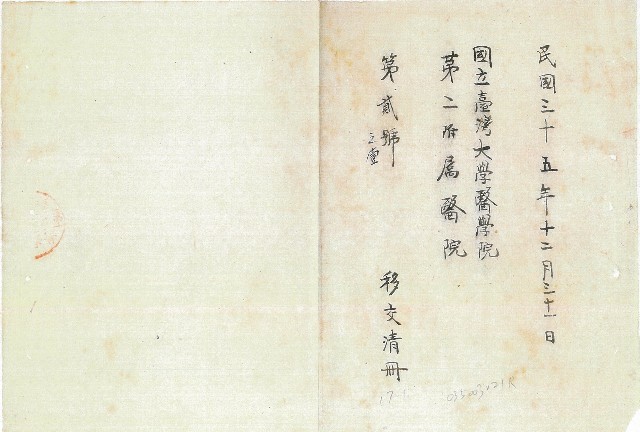 民國三十五年十二月三十一日
國立臺灣大學醫學院
第二附屬醫院
第貳號
移交清冊